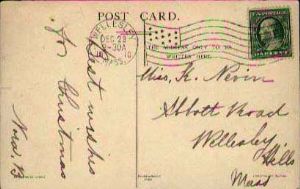 POST CARD.
WELLESLEY
DEC 23
9-30A
MASS.
THE ADDRESS ONLY TO BE
WRITTEN HERE.
Best wishes
for Christmas
Miss. K. Nevin
Abbott Road
Wellesley
Hills
Mass